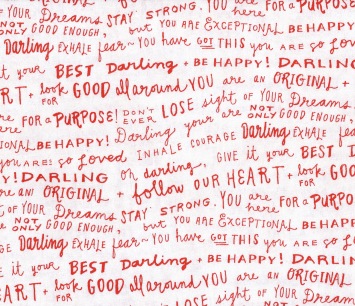 of YOUR Dreams STAY STRONG. YOU are here FOR a PURPOSE
NOT ONLY GOOD ENOUGH, but YOU ARE EXCEPTIONAL BE HAPPY
Darling EXHALE fear ~ You have GOT THIS you ARE so Loved
it your BEST Darling + BE HAPPY! DARLING
ART + look FOR GOOD all around YOU are an ORIGINAL +
are here FOR a PURPOSE! DON'T EVER LOSE sight of YOUR Dreams
IONAL BE HAPPY! Darling your are NOT ONLY GOOD ENOUGH,
you ARE so Loved INHALE COURAGE Darling EXHALE fea
Y! DARLING oh darling, GIVE it YOUR BEST D
re an ORIGINAL + follow OUR HEART + look FOR GOOD
of YOUR Dreams STAY STRONG. YOU are here FOR a PURPOS
NOT ONLY GOOD ENOUGH, but YOU ARE EXCEPTIONAL BE HAPPY
GE Darling EXHALE fear ~ You have GOT THIS you ARE so Lo
e it your BEST Darling + BE HAPPY! DARLI
EART + look FOR GOOD all around YOU are an ORIGINAL
are here FOR a PURPOSE! DON'T EVER LOSE sight of YOUR Dreams